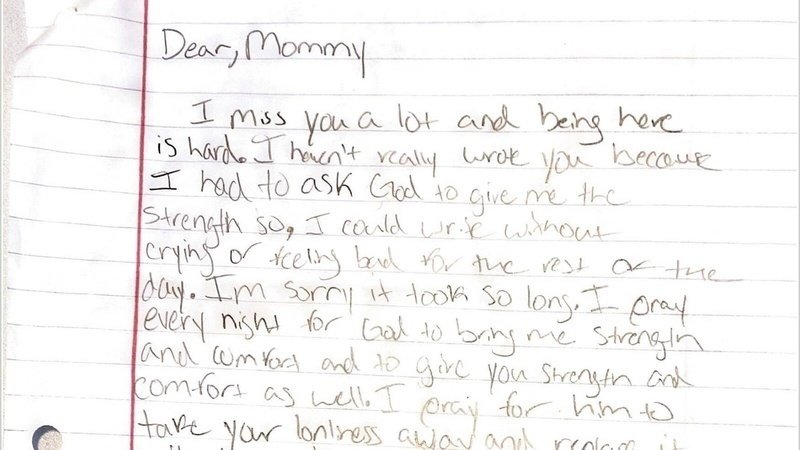 Dear, Mommy
I miss you a lot and being here
is hard. I haven't really wrote you because
I had to ask God to give me the
strength so, I could write without
crying or feeling bad for the rest of the
day. I'm sorry it took so long. I pray
every night for God to bring me strength
and comfort and to give you strength and
comfort as well. I pray for him to
take your lonliness away and replace it